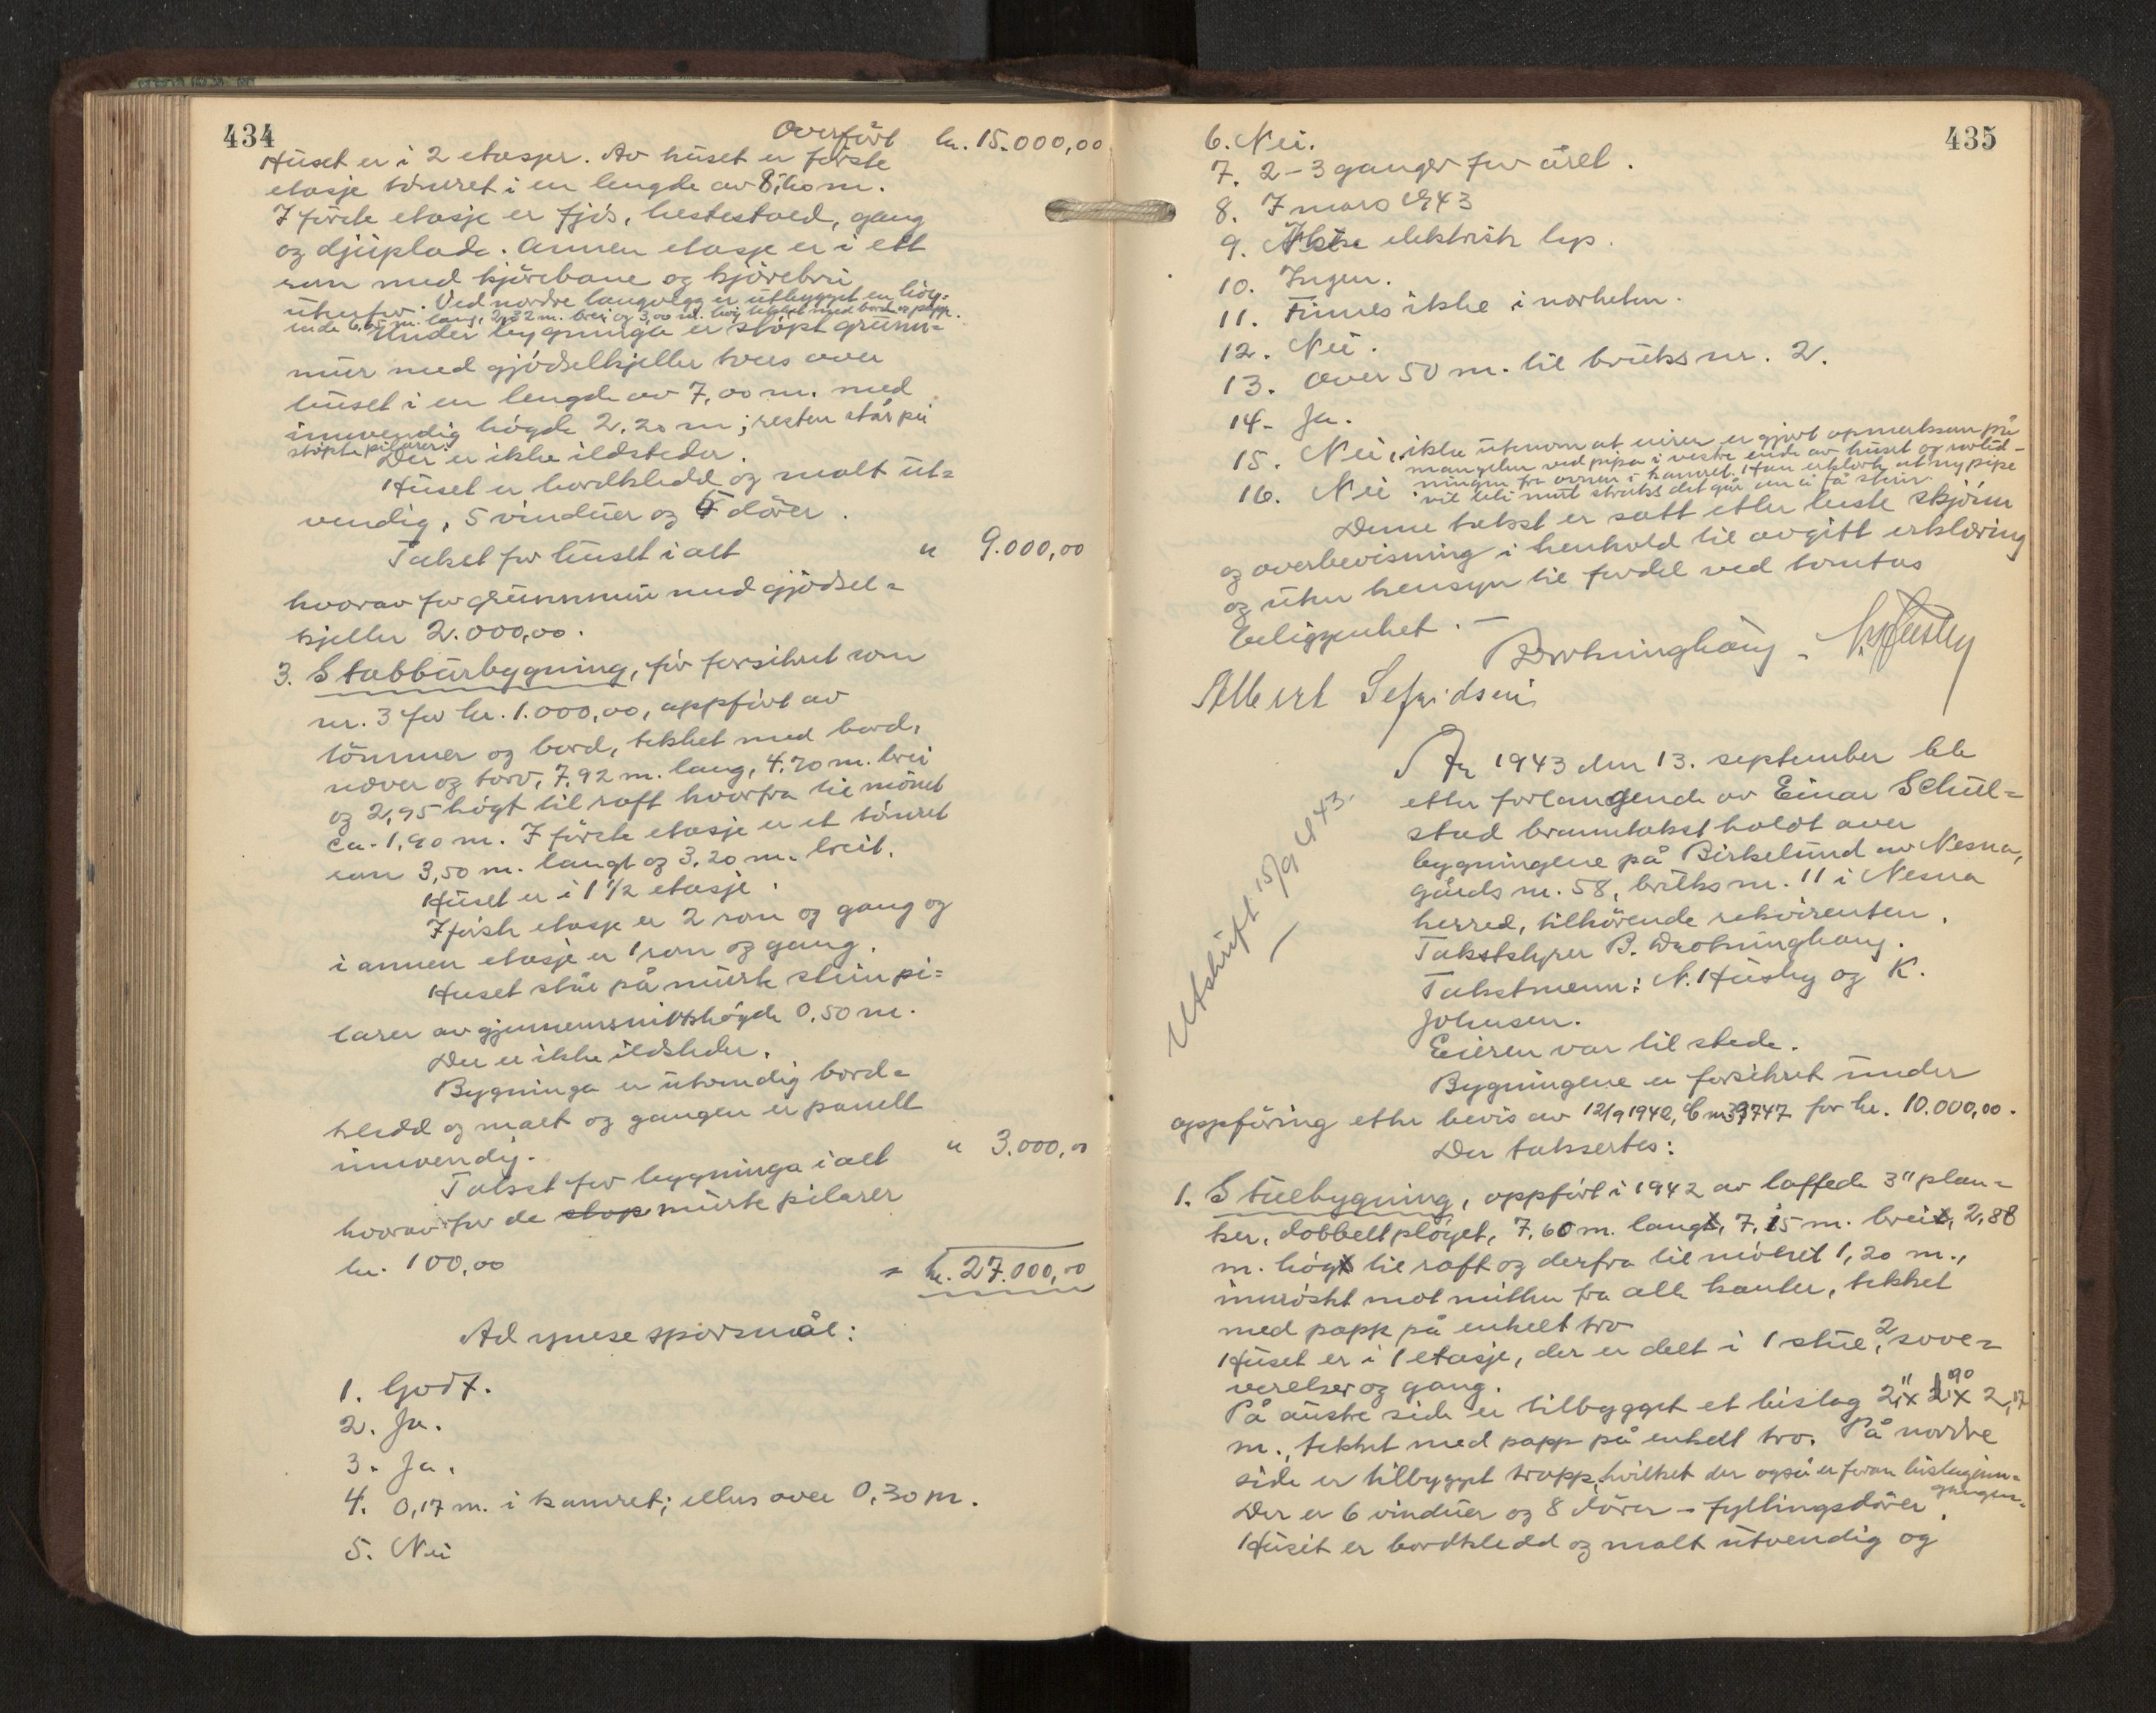 434
Overført kr. 15.000,00
Huset er i 2 etasjer. Av huset er første
etasje tømret i en lengde av 8,60 m.
I første etasje er fjøs, hestestald, gang
og djuplade. Annen etasje er i ett
rom med kjørebane og kjørebru
utenfor. Ved nordre langvegg er utbygget en høy-
lade 6,65 m. lang, 2,32 m. brei og 3,00 m. høg tekket med bord og papp.
Under bygninga er støpt grunn-
mur med gjødselkjeller tvers over
huset i en lengde av 7,00 m. med
innvendig høgde 2.20 m; resten står på
støpte pilarer.
Der er ikke ildsteder.
Huset er bordkledd og malt ut-
vendig, 5 vinduer og 5 dører.
Takst for huset i alt " 9.000,00
hvorav for grunnmur med gjødsel-
kjeller 2.000,00.
3. Stabbursbygning, før forsikret som
nr. 3 for kr. 1.000,00, oppført av
tømmer og bord, tekket med bord,
never og torv, 7,92 m. lang, 4,70 m. brei
og 2,95 høgt til raft hvorfra til mønet
ca. 1,90 m. I første etasje er et tømret
rom 3,50 m. langt og 3,20 m. breit.
Huset er i 1 1/2 etasje.
I første etasje er 2 rom og gang og
i annen etasje er 1 rom og gang.
Huset står på murte steinpi-
larer av gjennemsnittshøgde 0,50 m.
Der er ikke ildsteder.
Bygninga er utvendig bord-
kledd og malt og gangen er panelt
innvendig.
Takst for bygninga i alt " 3.000,00
hvorav for de støp murte pilarer
kr. 100,00
= kr. 27.000,00
Ad ymse spørsmål:
1. Godt.
2. Ja.
3. Ja.
4. 0,17 m. i kamret; ellers over 0,30 m.
5. Nei
435
6. Nei.
7. 2-3 ganger for året.
8. I mars 1943
9. elektrisk lys.
10. Ingen.
11. Finnes ikke i nærheten.
12. Nei.
13. Over 50 m. til bruks nr. 2.
14. Ja.
15. Nei, ikke utenom at eieren er gjort opmerksom på
mangelen ved pipa i vestre ende av huset og
fra ovnen i kamret. Han erklærte at ny pipe
vil bli murt straks det går an å få stein.
16. Nei
Denne takst er satt etter beste skjønn
og overbevisning i henhold til avgitt erklæring
og uten hensyn til fordel ved tomtas
beliggenhet. -
Dronninghaug. N. Husby
Albert Sefridsen
Utskrift 15/9 1943.
År 1943 den 13. september ble
etter forlangende av Einar Schul-
stad branntakst holdt over
bygningene på Birkelund av Nesna,
gårds nr. 58, bruks nr. 11 i Nesna
herred, tilhørende rekvirenten.
Takststyrer B. Dronninghaug.
Takstmenn: N. Husby og K.
Johnsen.
Eieren var til stede.
Bygningene er forsikret under
oppføring etter bevis av 12/9 1942, C nr 39747 for kr. 10.000,00.
Der taksertes:
1. Stuebygning, oppført i 1942 av laftede 3" plan-
ker, dobbeltpløyet, 7,60 m. lang, 7,15 m. brei, 2,88
m. høg til raft og derfra til mønet 1,20 m.,
innrøstet mot midten fra alle kanter, tekket
med papp på enkelt tro
Huset er i 1 etasje, der er delt i 1 stue, 2 sove-
værelser og gang.
På austre side er tilbygget et bislag 2,11 x 1,90 x 2,17
m., tekket med papp på enkelt tro. På nordre
side er tilbygget trapp, hvilket der også er foran bislaginn-
gangen.
Der er 6 vinduer og 8 dører - fyllingsdører.
Huset er bordkledd og malt utvendig og